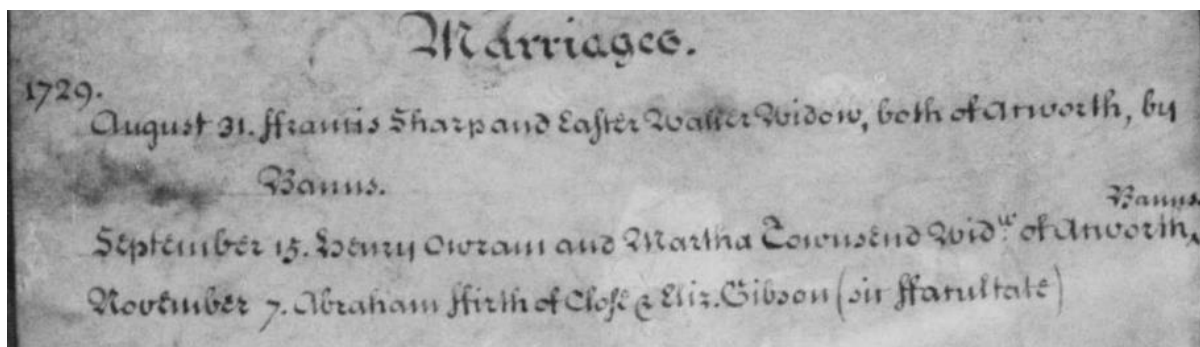 Marriages.
1729.
August 31. ffrancis Sharp and Easter Walker Widow, both of Atworth, by
Banns.
Banns.
September 15. Henry Owram and Martha Townsend Widw. of Atworth,
November 7. Abraham ffirth of Close & Eliz. Gibson (sit ffacultate)